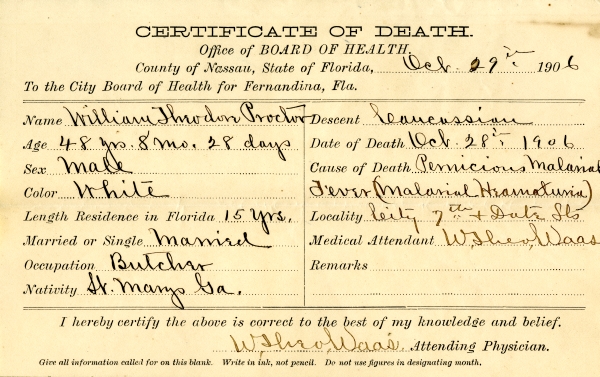 CERTIFICATE OF DEATH.
Office of BOARD OF HEALTH.
County of Nassau, State of Florida, Oct. 29th 1906
To the City Board of Health for Fernandina, Fla.
Name William Thodore Proctor
Age 48 yrs. 8 mo. 28 days
Sex Male
Color White
Length Residence in Florida 15 Yrs.
Married or Single Married
Occupation Butcher
Nativity St. Marys Ga.
Descent Caucassian
Date of Death Oct. 28th 1906
Cause of Death Pernicious Malarial
Fever (Malarial Heamaturia)
Locality City 7th & Date Sts
Medical Attendant W. Theo. Waas
Remarks
I hereby certify the above is correct to the best of my knowledge and belief.
W. Theo. Waas. Attending Physician.
Give all information called for on this blank. Write in ink, not pencil. Do not use figures in designating month.